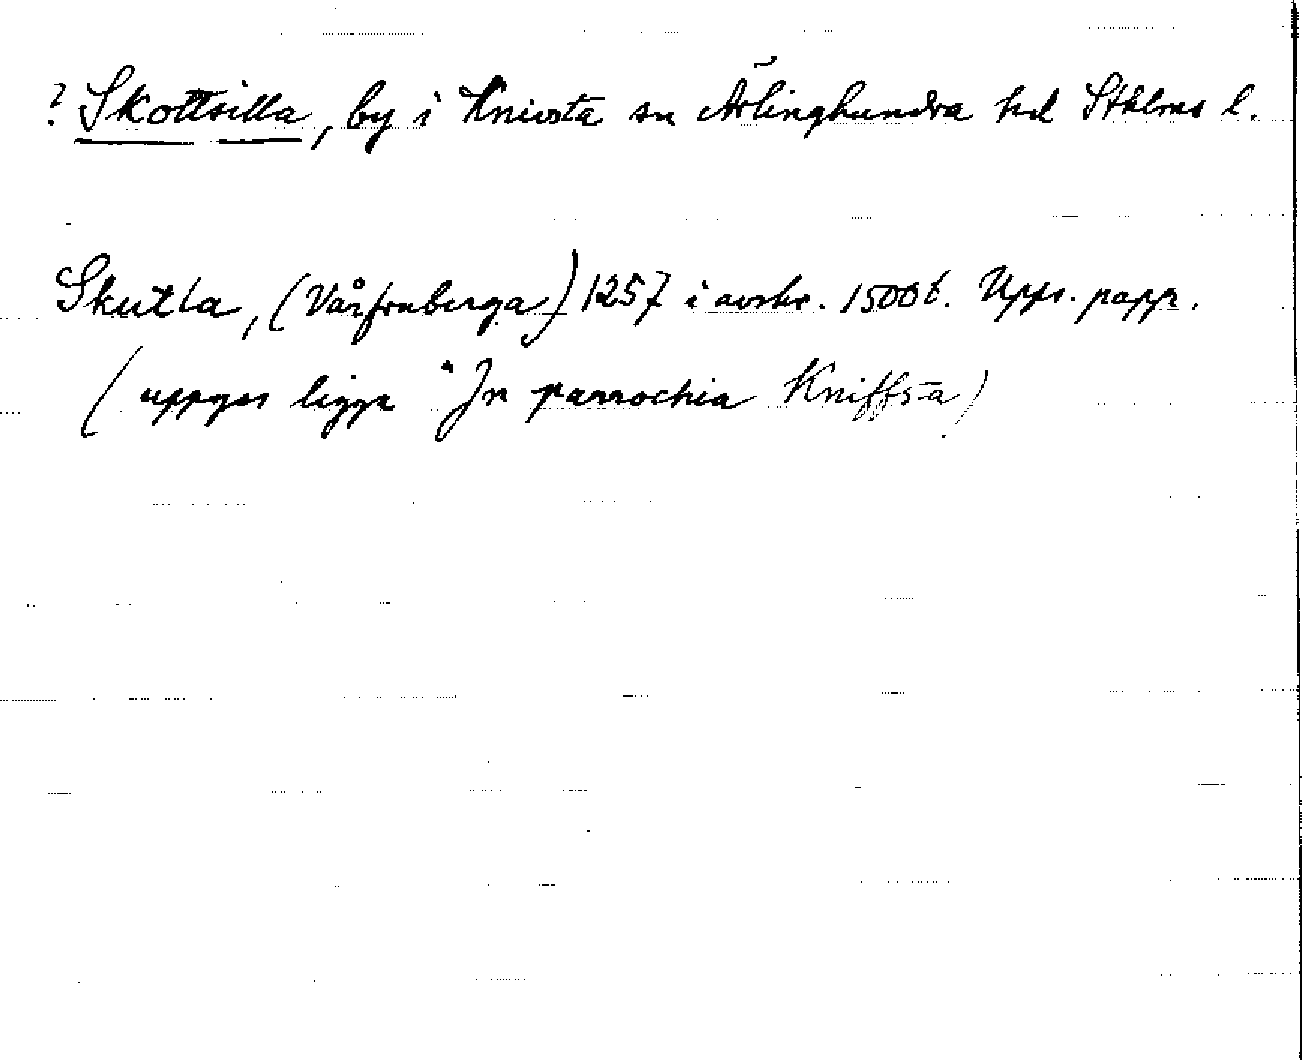 ? Skottsilla, by i Knivsta sn Ärlinghundra hd Sthlms l.
Skutla, (Vårfruberga) 1257 i avskr. 1500 b. Upps. papp.
(uppges ligga "In parrochia Kniffsta)